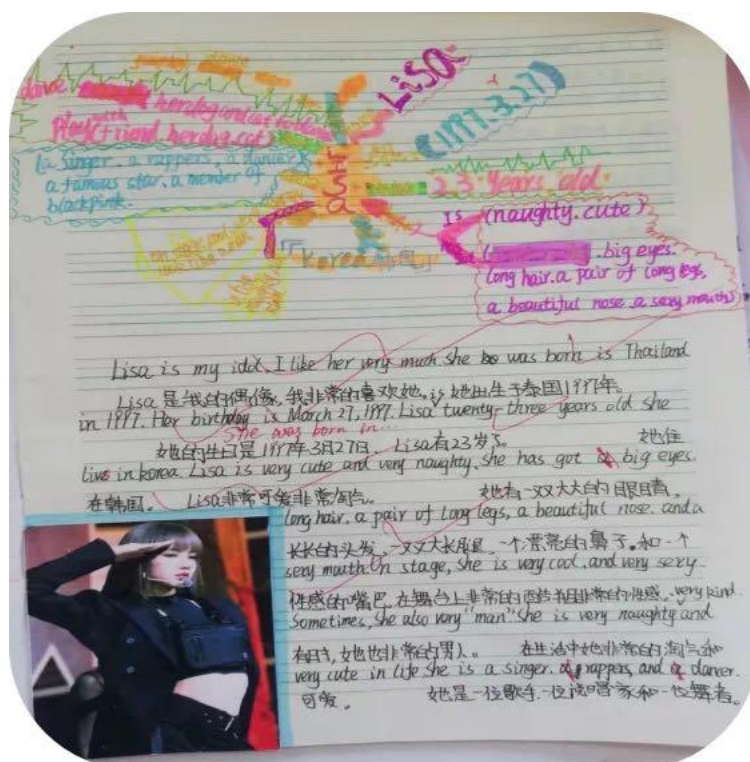 LiSA
(1997.3.27)
dance
her dog and
Play with
(friend. her dog. cat)
(a singer. a rappers, a dancer
a famous star. a member of
blackpink.
LiSA
23 years old
Is (naughty. cute)
. big eyes.
long hair. a pair of long legs.
a beautiful nose. a sexy mouth)
korea
Lisa is my idol. I like her very much. She was born is Thailand
Lisa 是我的偶像, 我非常的喜欢她。 她出生于泰国1997年。
in 1997. Her birthday is March 27, 1997. Lisa is twenty-three years old she
She was born in...
她的生日是1997年3月27日. Lisa有23岁了。 她住
live in korea. Lisa is very cute and very naughty. She has got a big eyes.
在韩国。 Lisa非常可爱非常淘气。 她有一双大大的眼睛,
long hair. a pair of long legs, a beautiful nose. and a
长长的头发, 一双大长腿, 一个漂亮的鼻子。和一个
sexy mouth. On stage, She is very cool. and very sexy.
性感的嘴巴, 在舞台上非常的 非常的性感, very kind.
Sometimes, She also very "man" She is very naughty and
有时, 她也非常的男人。 在生活中她非常的淘气和
very cute in life She is a singer. a rappers, and a dancer.
可爱。 她是一位歌手, 一位 家和一位舞者。